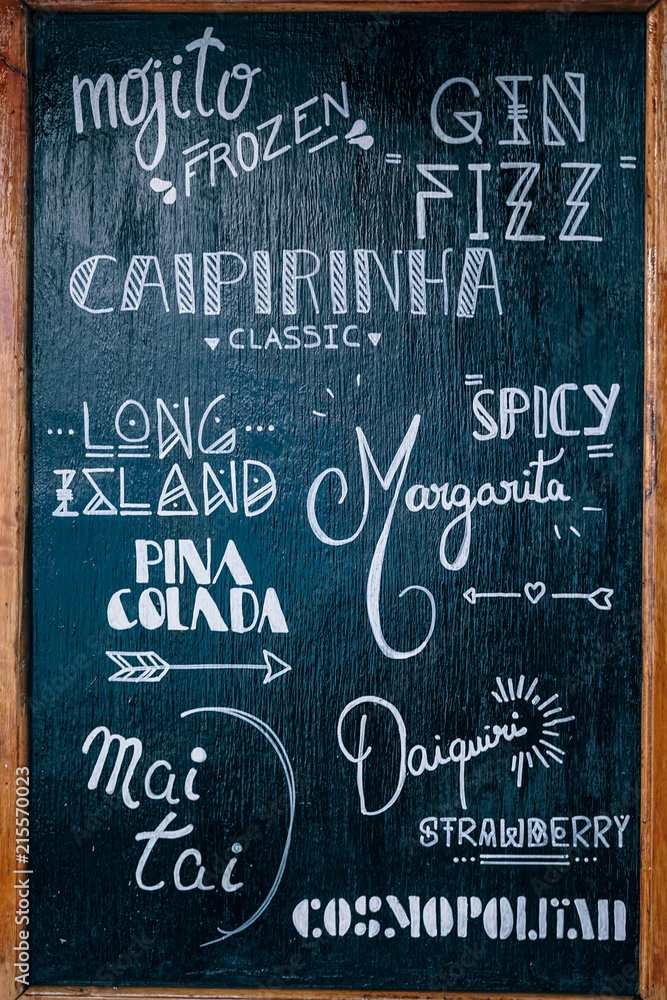 mojito
FROZEN
GIN
FIZZ
CAIPIRINHA
CLASSIC
LONG
ISLAND
SPICY
Margarita
PINA
COLADA
Mai
tai
Daiquiri
STRAWBERRY
COSMOPOLITAN
215570023
Adobe Stock | #215570023